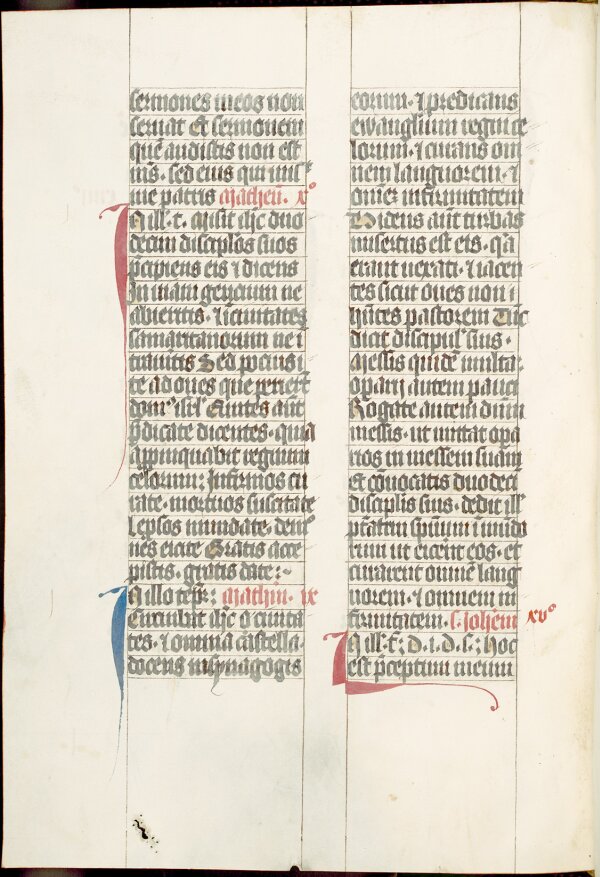 sermones meos non
seruat Et sermonem
quē audistis non est
me patris Matheū. x°
Jn ill. t. Misit ihc duo
decim disciplos suos
p̄cipiens eis ⁊ dicens
Jn uiam gencium ne
abieritis. ⁊ i ciuitates
samaritanorum ne i
traueitis Sed pocius i
te ad oues que perierūt
domꝰ isrl' Euntes aūt
p̄dicate dicentes. quia
appinquabit regnum
celorum: Jnfirmos cu
rate. mortuos suscitate
leprosos mundate. demo
nes eicite Gratis acce
pistis. gratis date:~
Jn illo tpr: Mathm. ix
Circuibat ihc o ciuita
tes. ⁊ omnia castella.
docens in synagogis
eorum. ⁊ predicans
ewanglium regni ce
lorum. ⁊ curans om
nem languorem. ⁊
omnem infirmitatem
Videns aūt turbas
misertus est eis. qa
erant uexati. ⁊ iacen
tes sicut oues non
hn̄tes pastorem Tūc
dicit discipul' suis.
Messis quidē multa.
oparij autem pauci
Rogate autem dnm
messis. ut mittat opa
rios in messem suam
Et conuocatis duodeci
disciplis suis. dedit ill'
ptātem spiuum inmūdo
rum ut eicerent eos. et
curarent omnem lang
uorem. ⁊ omnem in
firmitatem. S. Johem xv°
Jn ill. t: D. i. d. s: Hoc
est p̄ceptum meum